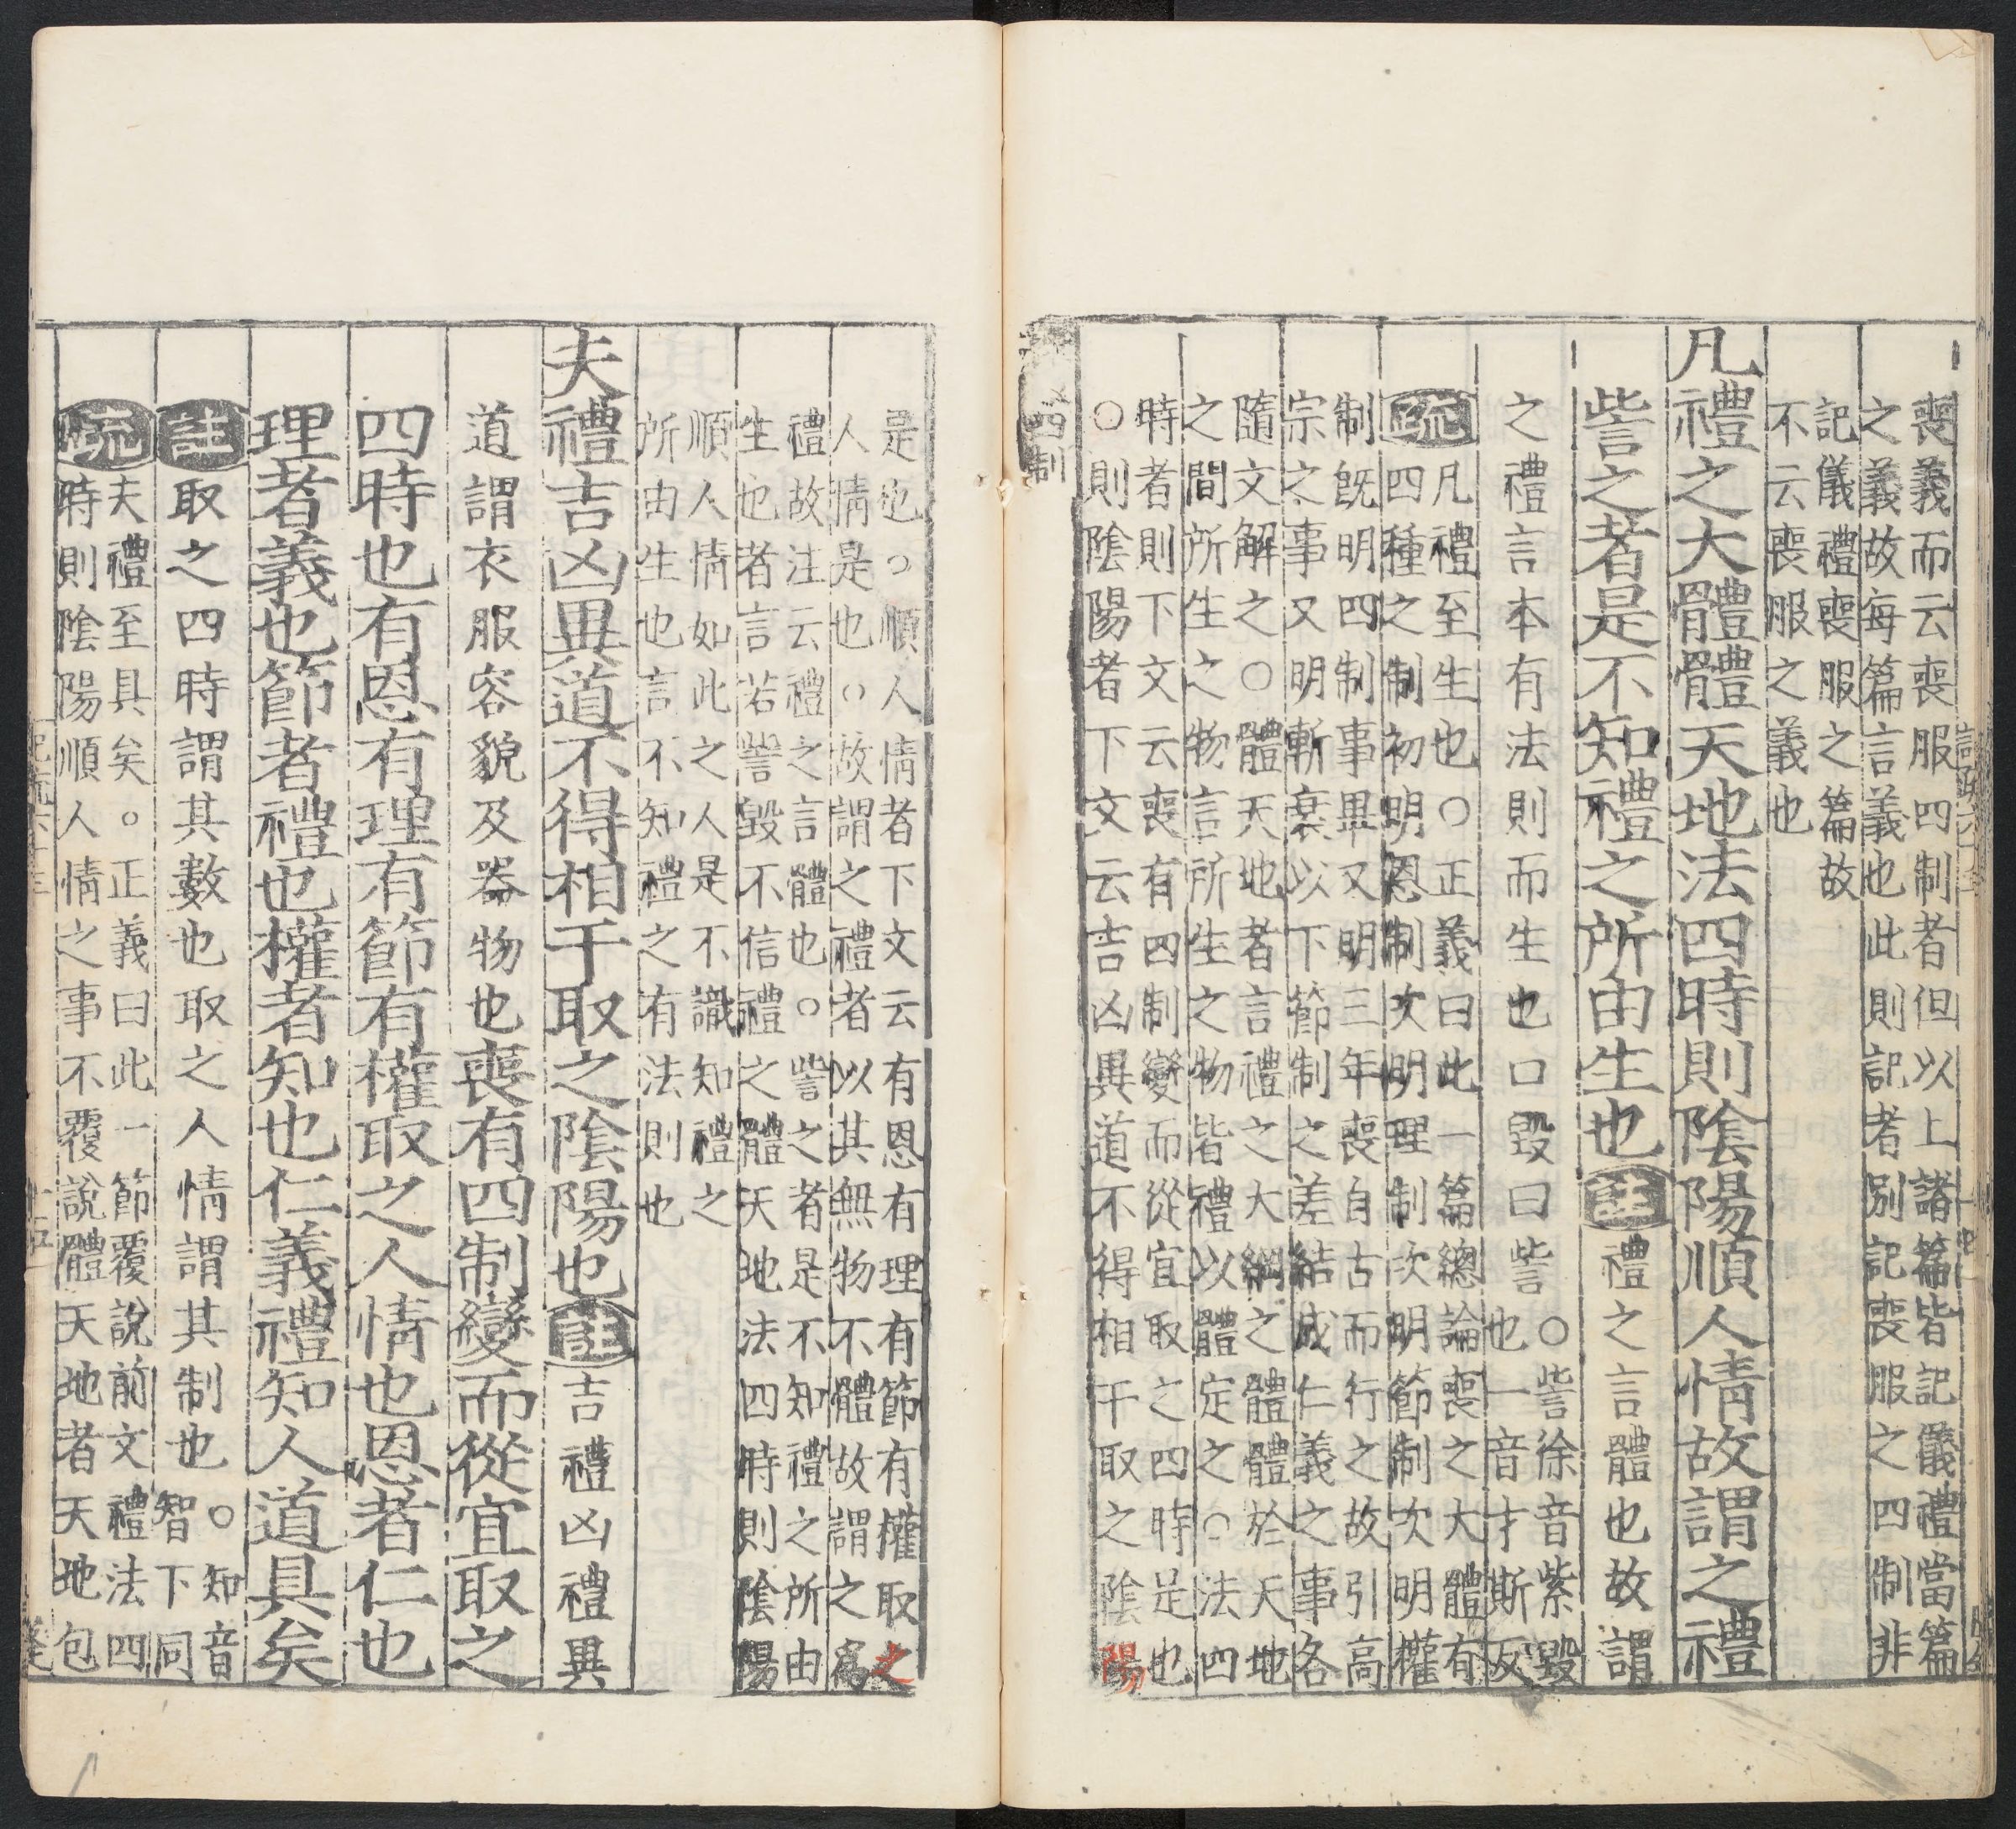 喪義而云喪服四制者但以上諸篇皆記儀禮當篇
之義故每篇言義也此則記者別記喪服之四制非
記儀禮喪服之篇故
不云喪服之義也
凡禮之大體體天地法四時則陰陽順人情故謂之禮
訾之者是不知禮之所由生也註禮之言體也故謂
之禮言本有法則而生也口毀曰訾○訾徐音紫毀
也一音才斯反
疏凡禮至生也○正義曰此一篇總論喪之大體有
四種之制初明恩制次明理制次明節制次明權
制旣明四制事畢又明三年喪自古而行之故引高
宗之事又明斬衰以下節制之差結成仁義之事各
隨文解之○體天地者言禮之大綱之體體於天地
之間所生之物言所生之物皆禮以體定之○法四
時者則下文云喪有四制變而從宜取之四時是也
○則陰陽者下文云吉凶異道不得相干取之陰陽
四制
是也○順人情者下文云有恩有理有節有權取之
人情是也○故謂之禮者以其無物不體故謂之爲
禮故注云禮之言體也○訾之者是不知禮之所由
生也者言若訾毀不信禮之體天地法四時則陰陽
順人情如此之人是不識知禮之
所由生也言不知禮之有法則也
夫禮吉凶異道不得相干取之陰陽也註吉禮凶禮異
道謂衣服容貌及器物也喪有四制變而從宜取之
四時也有恩有理有節有權取之人情也恩者仁也
理者義也節者禮也權者知也仁義禮知人道具矣
註取之四時謂其數也取之人情謂其制也○知音
智下同
疏夫禮至具矣○正義曰此一節覆說前文禮法四
時則陰陽順人情之事不覆說體天地者天地包